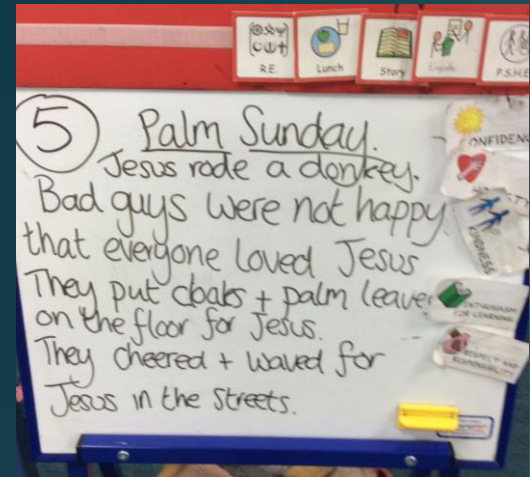 R.E.
Lunch
Story
English
P.S.H.E
5
Palm Sunday.
Jesus rode a donkey.
Bad guys were not happy
that everyone loved Jesus
They put cloaks + palm leaves
on the floor for Jesus.
They cheered + waved for
Jesus in the streets.
KINDNESS
ENTHUSIASM
FOR LEARNING
RESPECT AND
RESPONSIBILITY